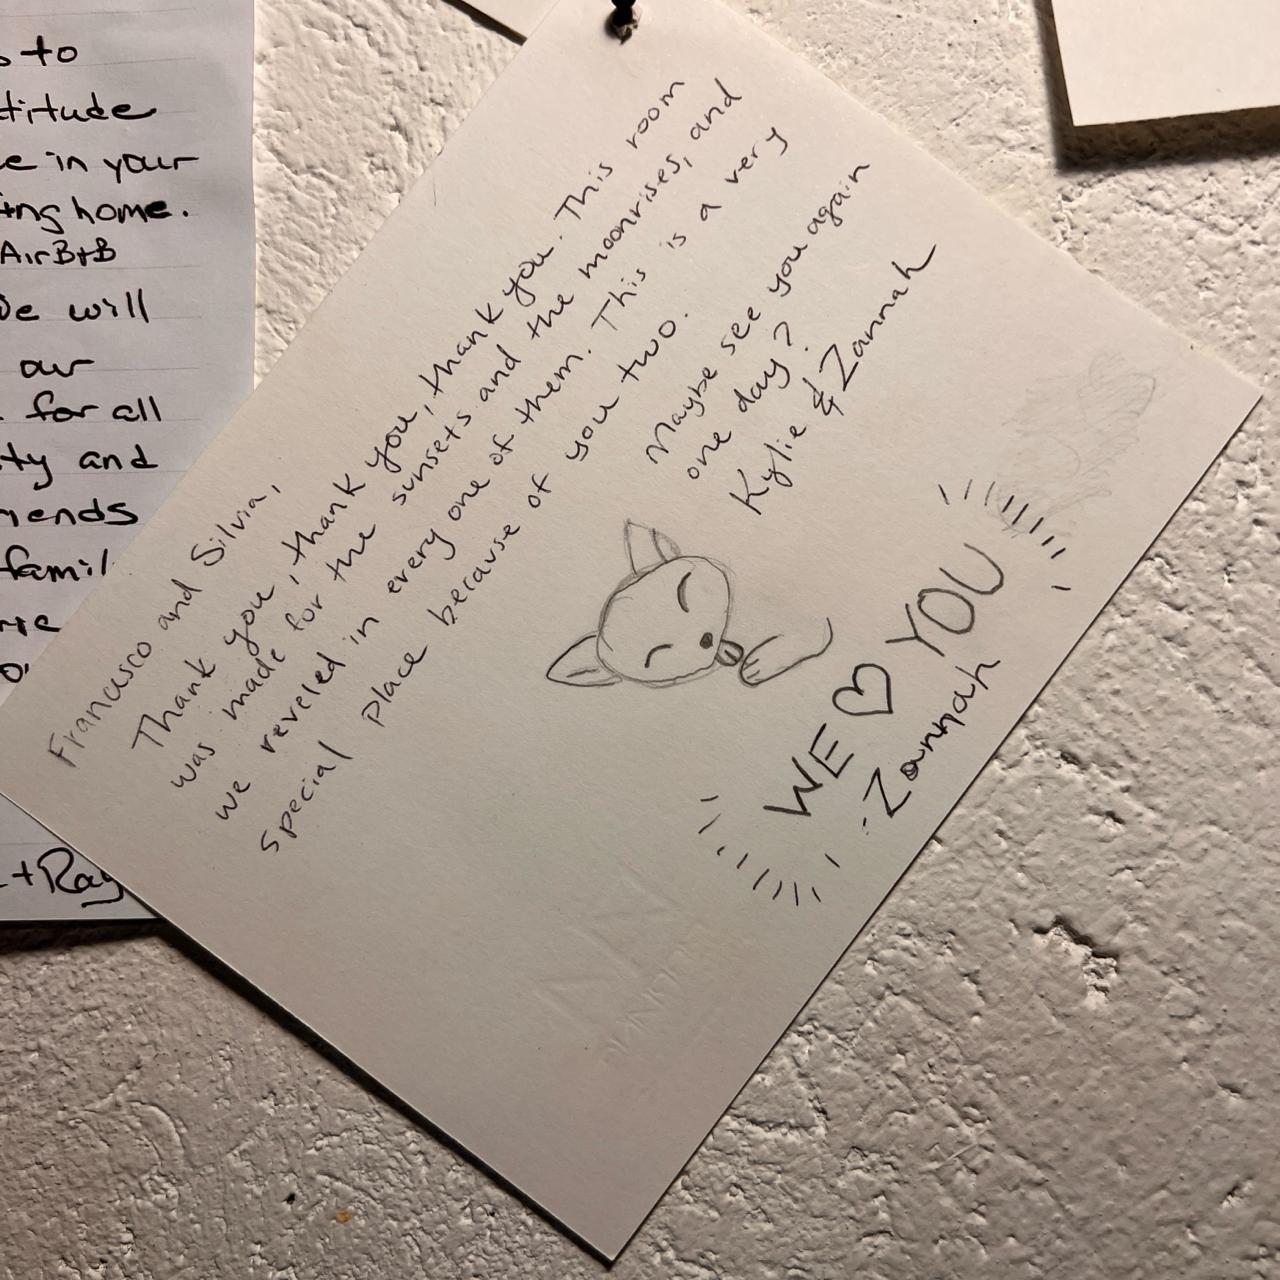 to
titude
in your
home.
AirB+B
We will
our
for all
and
+Ray
Francisco and Silvia,
Thank you, thank you, thank you. This room
was made for the sunsets and the moonrises, and
we reveled in every one of them. This is a very
special place because of you two.
Maybe see you again
one day?
Kylie & Zannah
WE ♡ YOU
-Zannah